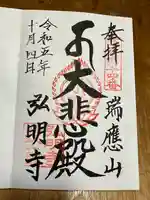 奉拝
瑞應山
大悲殿
弘明寺
令和五年
十月四日